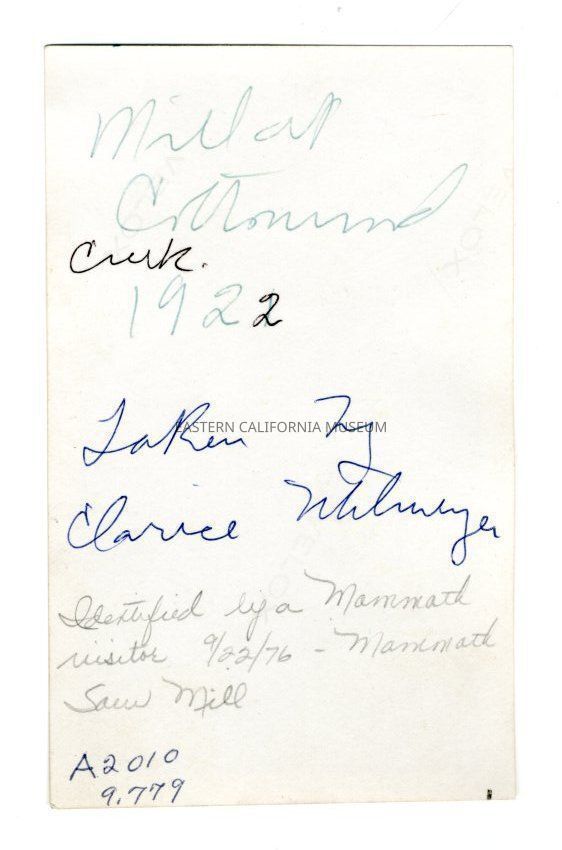 Mill at
Cottonwood
Creek.
1922
EASTERN CALIFORNIA MUSEUM
Taken by
Clarice
Identified by a Mammoth
visitor 9/22/76 - Mammoth
Saw Mill
A2010
9.779